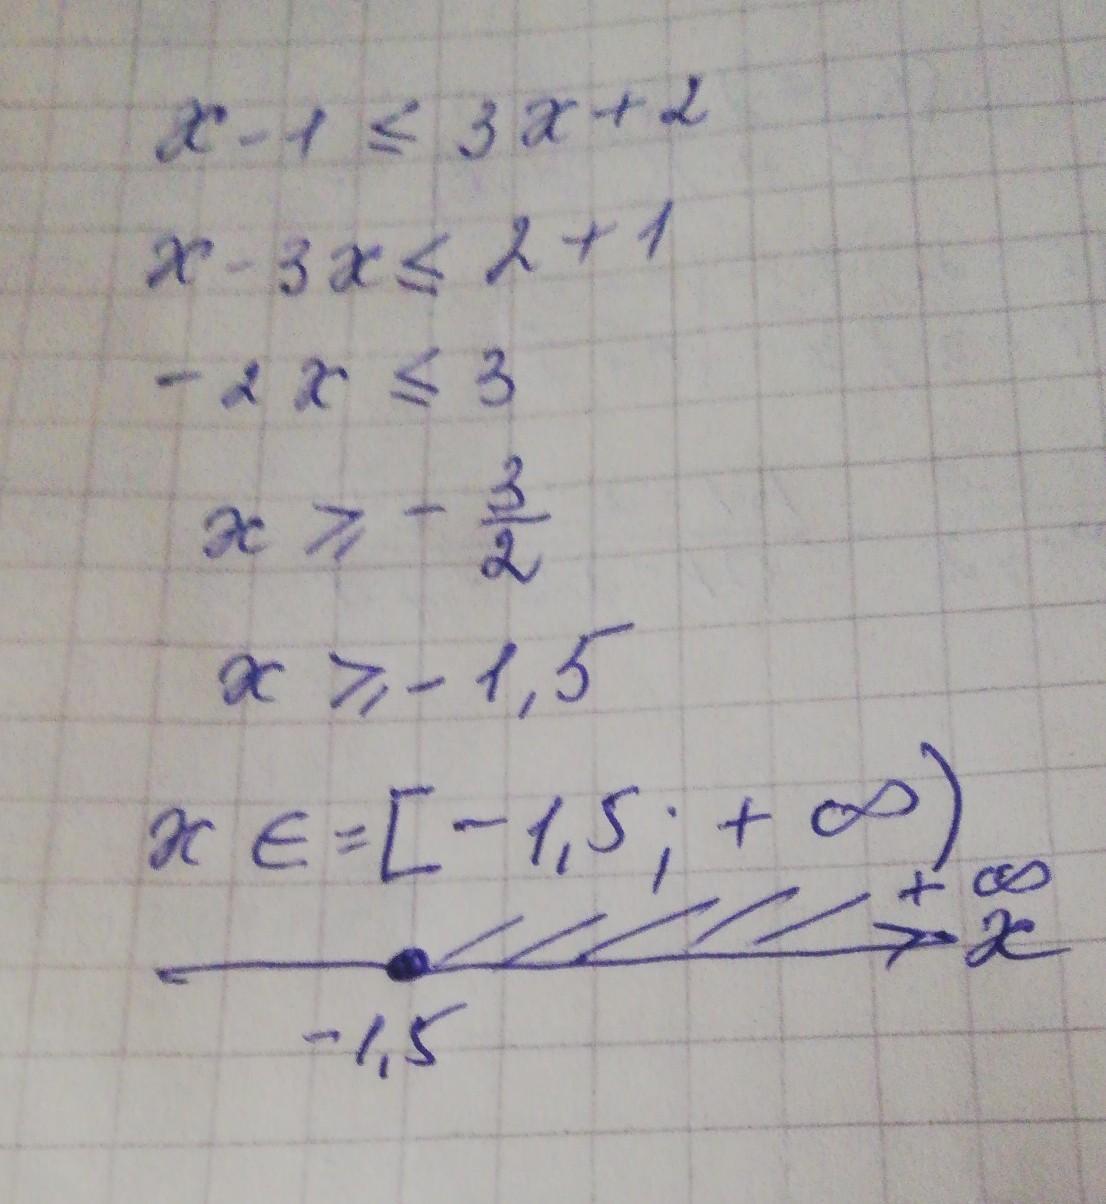 x - 1 ≤ 3x + 2
x - 3x ≤ 2 + 1
- 2x ≤ 3
x ≥ - 3/2
x ≥ - 1,5
x ∈ = [- 1,5; + ∞)
+ ∞
x
- 1,5